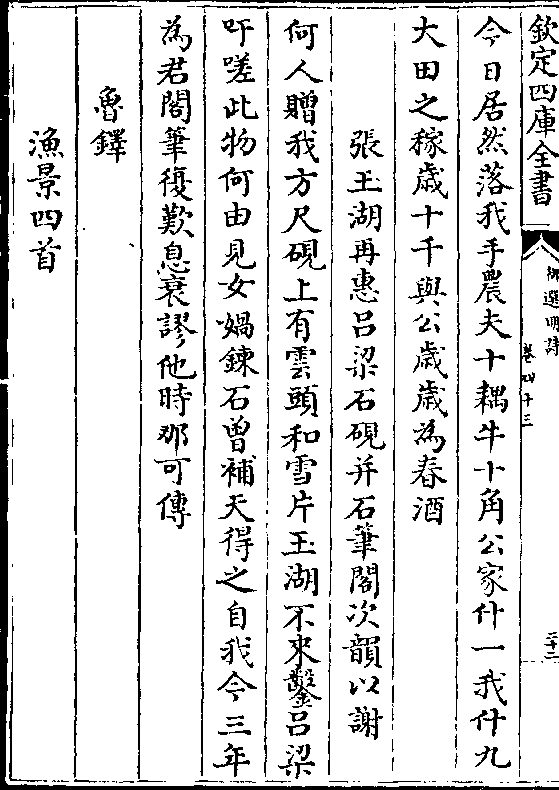 欽定四庫全書
御選明詩
卷四十三
二十二
今日居然落我手農夫十耦牛十角公家什一我什九
大田之稼歲十千與公歲歲為春酒
張玉湖再惠呂梁石硯并石筆閣次韻以謝
何人贈我方尺硯上有雲頭和雪片玉湖不來鑿呂梁
吁嗟此物何由見女媧鍊石曾補天得之自我今三年
為君閣筆復歎息衰謬他時那可傳
魯鐸
漁景四首